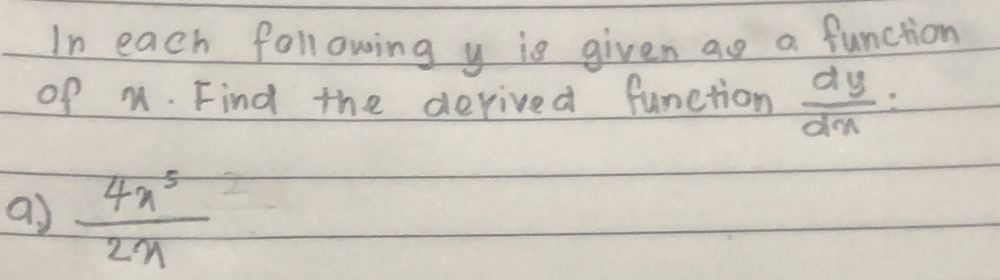 In each following y is given as a function
of x. Find the derived function dy/dx:
a) 4x⁵/2x